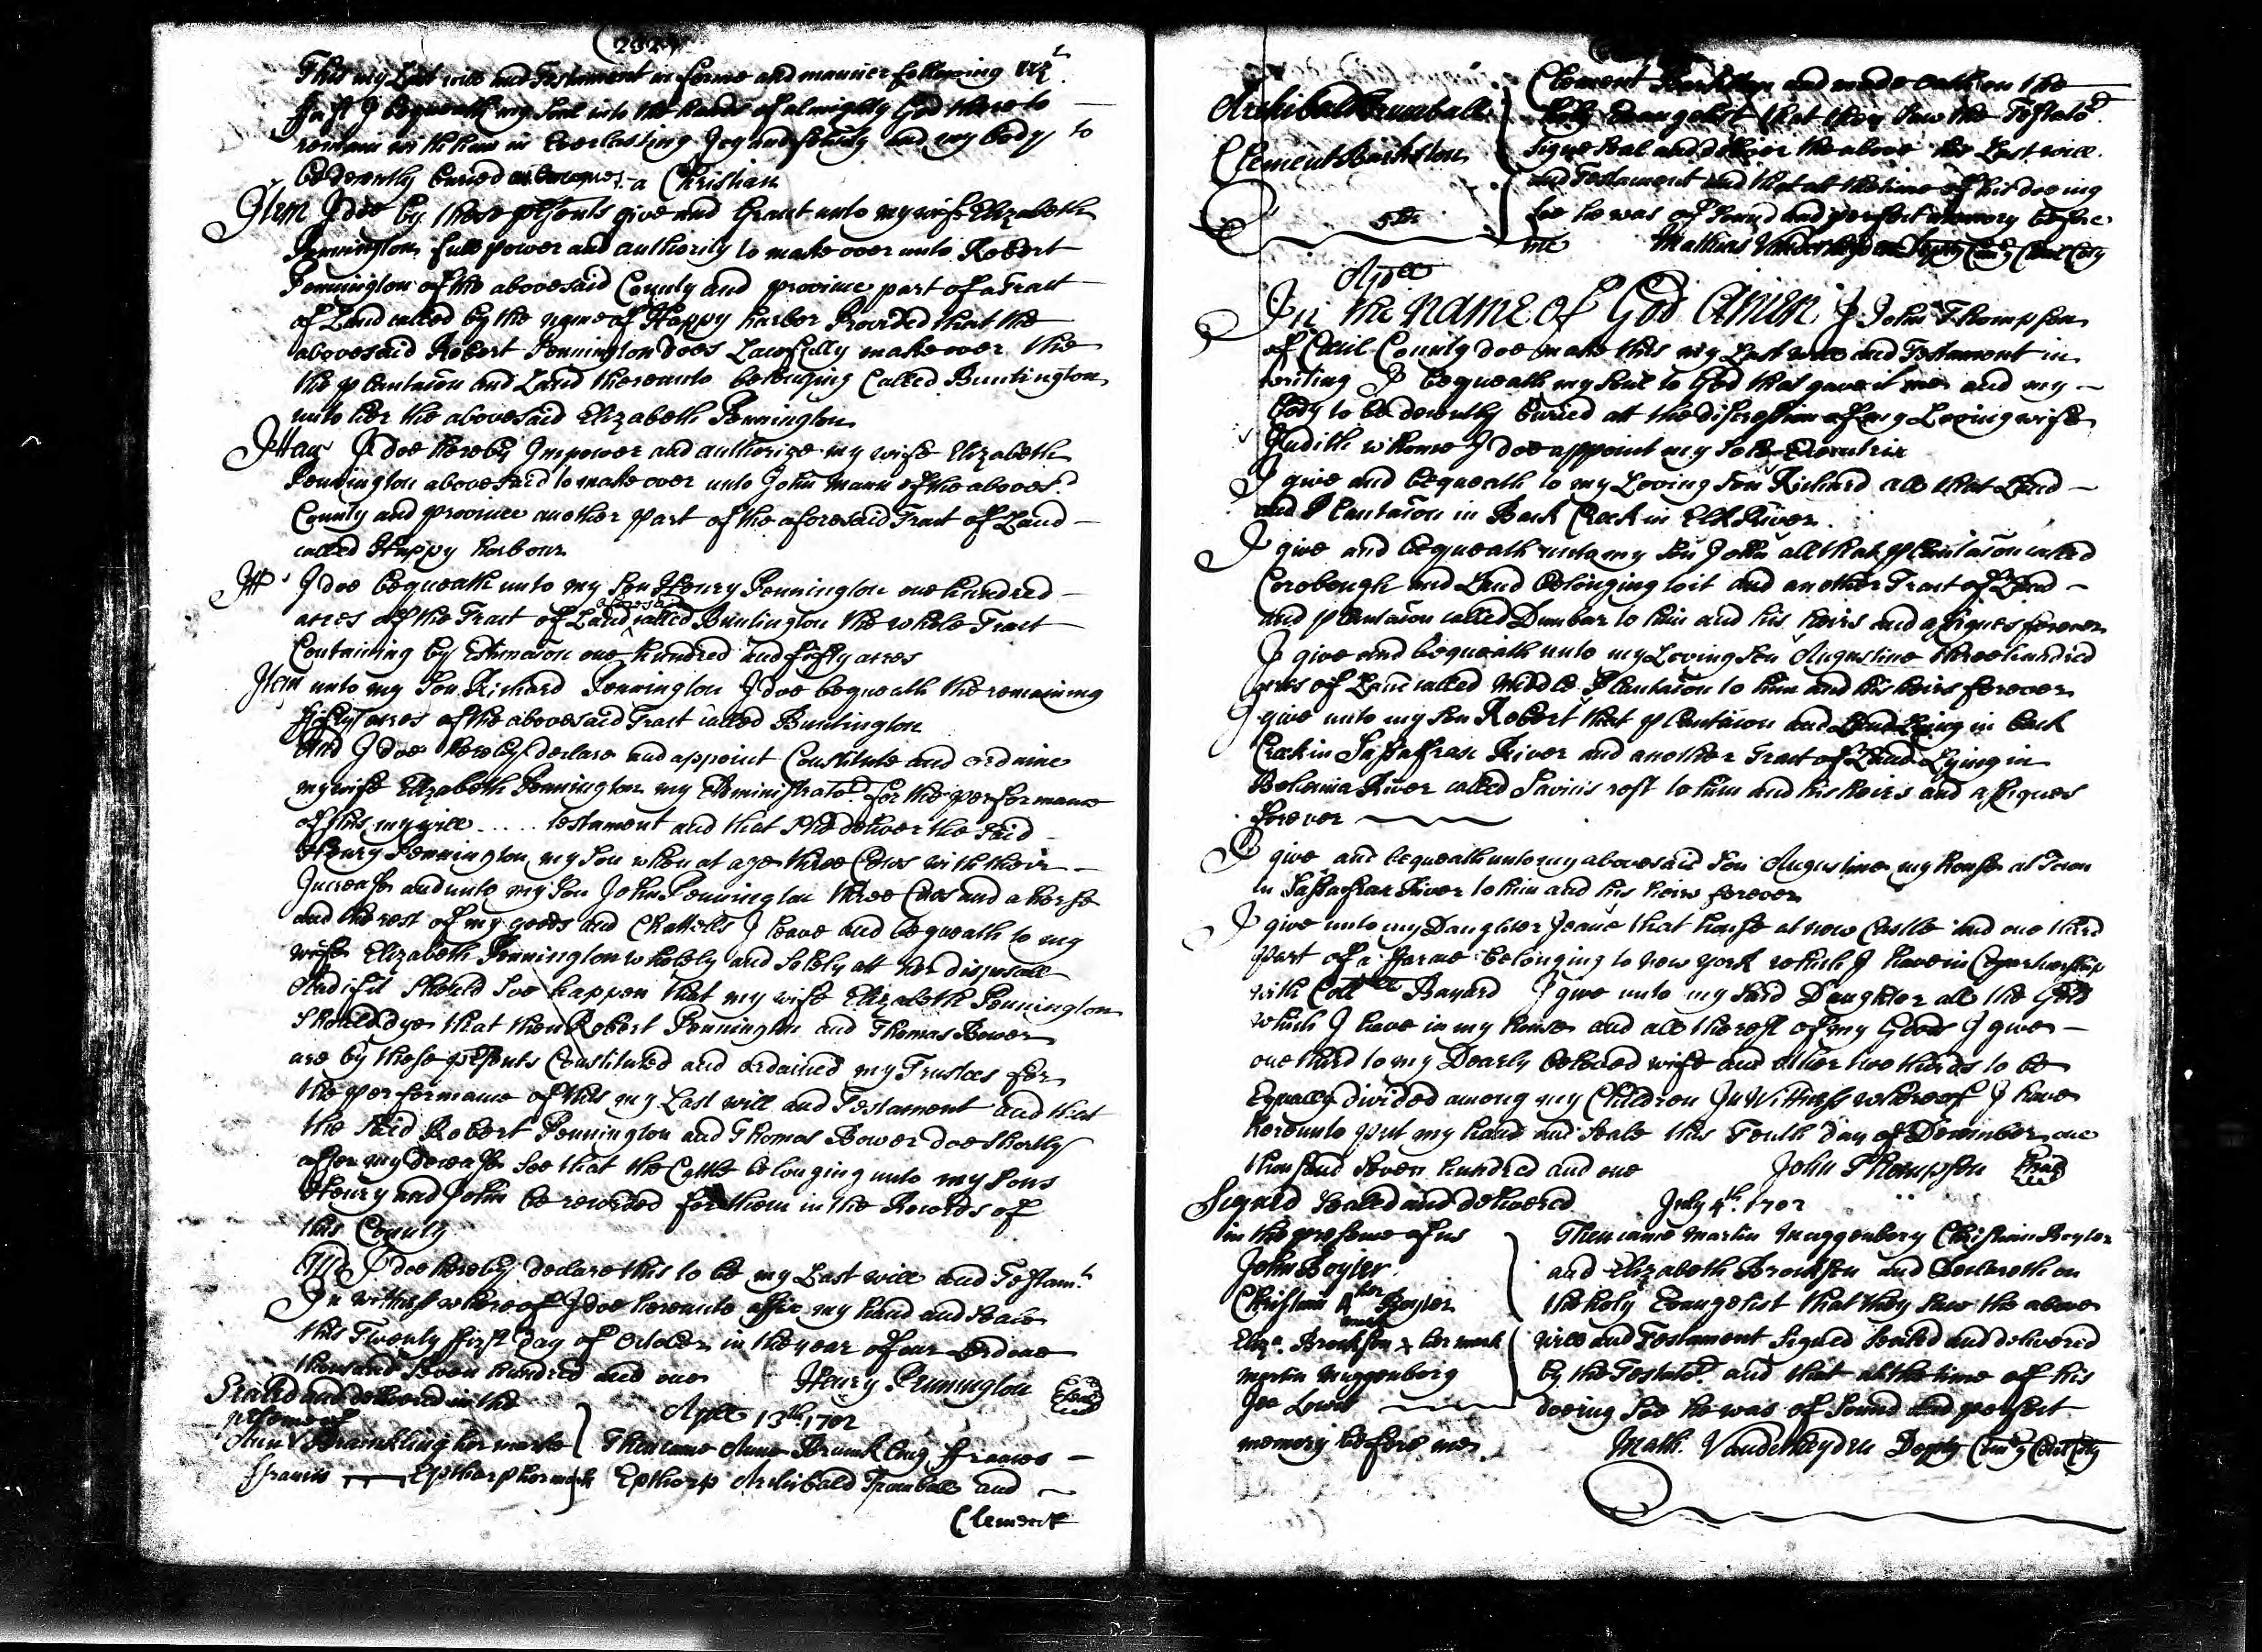 (232)
This my Last will and Testament in forme and manner following viz<sup>t</sup>
ffirst I bequeath my Soul into the hands of almighty God there to
remain with him in Everlasting Joy and felicity and my body to
be decently buried as becomes a Christian
Item I doe by these p<sup>r</sup>sents give and Grant unto my wife Elizabeth
Pennington full power and authority to make over unto Robert
Pennington of the abovesaid County and province part of a Tract
of Land called by the name of Happy harbor Provided that the
abovesaid Robert Pennington does Lawfully make over the
the plantaion and Land thereunto belonging Called Buntington
unto her the abovesaid Elizabeth Pennington
Ittem I doe hereby Impower and authorize my wife Elizabeth
Pennington abovesaid to make over unto John Mann of the aboves<sup>d</sup>
County and province another part of the aforesaid Tract of Land
called Happy harbour
Itt I doe bequeath unto my Son Henry Pennington one hundred
acres of the Tract of Land aforesaid called Buntington the whole Tract
Containing by Estimaion one hundred and fifty acres
Item unto my Son Richard Pennington I doe bequeath the remaining
fifty acres of the abovesaid Tract called Buntington
And I doe hereby declare and appoint Constitute and ordaine
my wife Elizabeth Pennington my Administrato<sup>r</sup> for the performance
of this my will ..... testament and that She deliver the said
Henry Pennington my Son when at age three Cows with their
Increase and unto my Son John Pennington three Cows and a horse
and the rest of my goods and Chattells I leave and bequeath to my
wife Elizabeth Pennington wholely and Solely att her disposall
And if it should Soe happen that my wife Elizabeth Pennington
Should dye that then Robert Pennington and Thomas Bower
are by these p<sup>r</sup>sents Constituted and ordained my Trustees for
the performance of this my Last will and Testament and that
the Said Robert Pennington and Thomas Bower doe shortly
after my decease See that the Cattle belonging unto my Sons
Henry and John be recorded for them in the Records of
this County
And I doe hereby declare this to be my Last will and Testam<sup>t</sup>
In witness whereof I doe hereunto affix my hand and Seale
this Twenty first day of October in the year of our Lord one
thousand Seven hundred and one Henry Pennington Seal
Sealed and delivered in the
presence of Aprll 13<sup>th</sup> 1702
Ann X Brumkling her marke Then came Anne Brumkling ffrances
ffrances Epthorp her mark Epthorp Archibald Trumball and
Clement
Archibald Trumball
Clement Barkston
Clement Barkston and made oath on the
holy Evangelist that they Saw the Testato<sup>r</sup>
Signe Seal and deliver the above his Last will
and Testament and that att the time of his doeing
Soe he was of Sound and perfect memory before
me Mathias Vanderheyden Depty Com<sup>ry</sup> Cecil Coty
In the name of God Amen I John Thompson
of Cecil County doe make this my Last will and Testament in
writing I bequeath my Soul to God that gave it me and my
body to be decently buried att the discression of my Loving wife
Judith whome I doe appoint my Sole Executrix
I give and bequeath to my Loving Son Richard all that Land
and Plantaion in Back Creek in Elk River
I give and bequeath unto my Son John all that plantaion called
Corobough and Land belonging to it and another Tract of Land
and plantaion called Dunbar to him and his heirs and assignes forever
I give and bequeath unto my Loving Son Augustine three hundred
acres of Land called Middle Plantaion to him and his heirs forever
I give unto my Son Robert that plantaion and Land Lying in back
Creek in Sassafrax River and another Tract of Land Lying in
Bohemia River called Savins rest to him and his heirs and assignes
forever
I give and bequeath unto my abovesaid Son Augustine my house at Town
in Sassafrax River to him and his heirs forever
I give unto my Daughter Jeane that house at new Castle and one third
part of a ffarme belonging to new york which I have in Copartnership
with Coll Bayard I give unto my said Daughter all the Gold
which I have in my house and all the rest of my Goods I give
one third to my Dearly beloved wife and other two thirds to be
Equally divided among my Children In Witness whereof I have
hereunto put my hand and Seale this Tenth day of December one
thousand Seven hundred and one John Thompson Seal
Signed Sealed and delivered July 4<sup>th</sup> 1702
in the presence of us
John Boyler
Christian her mark Boyler
Eliz<sup>a</sup> Brookson X her mark
Martin Muggenborg
Joe Lowe
Then came Martin Muggenbory Christian Boyler
and Elizabeth Brookson and Declareth on
the holy Evangelist that they Saw the above
will and Testament Signed Sealed and delivered
by the Testato<sup>r</sup> and that at the time of his
doeing Soe he was of Sound and perfect
memory before me Math. Vanderheyden Depty Com<sup>ry</sup> Cecil Coty